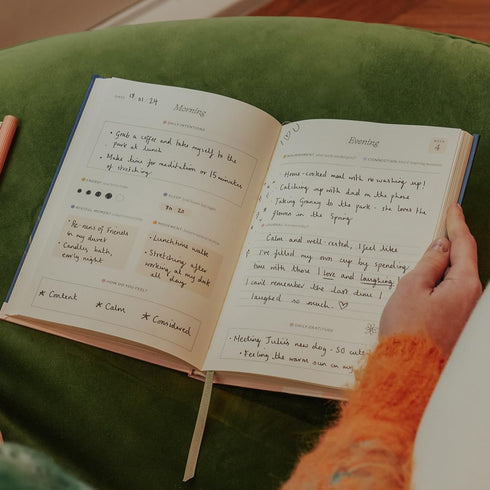 DATE 19.01.24
Morning
DAILY INTENTIONS
• Grab a coffee and take myself to the
park at lunch
• Make time for meditation or 15 minutes
of stretching
ENERGY
SLEEP
7H 20
RESTFUL MOMENT
• Re-runs of Friends
in my duvet
• Candles, bath,
early night
MOVEMENT
• Lunchtime walk
• Stretching after
working at my desk
all day
HOW DO YOU FEEL?
* Content
* Calm
* Considered
Evening
WEEK
NOURISHMENT
CONNECTION
Home-cooked meal with no washing up!
Catching up with dad on the phone
Taking Granny to the park - she loves the
flowers in the Spring
JOURNAL
Calm and well-rested, I feel like
I've filled my own cup by spending
time with those I love and laughing
I can't remember the last time I
laughed so much.
DAILY GRATITUDE
• Meeting Julia's new dog - SO cute
• Feeling the warm sun on my